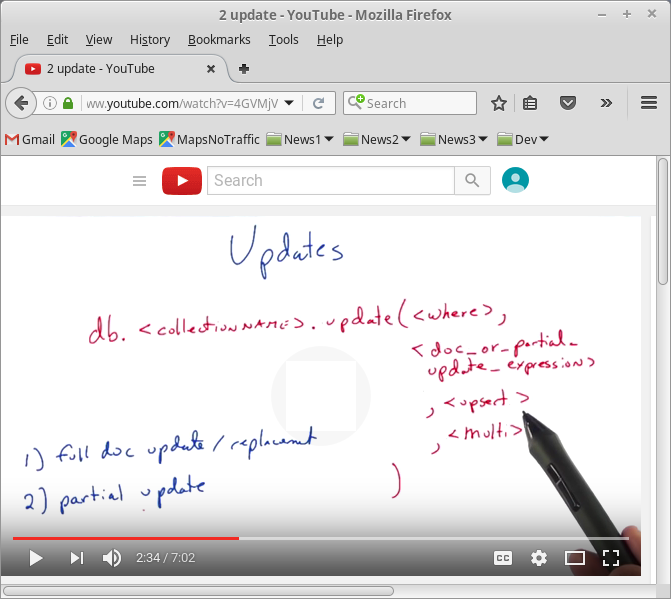 2 update - YouTube - Mozilla Firefox
File Edit View History Bookmarks Tools Help
2 update - YouTube
ww.youtube.com/watch?v=4GVMjV
Search
Gmail Google Maps MapsNoTraffic News1 News2 News3 Dev
Search
Updates
db. <collectionNAME>. update(<where>,
<doc_or_partial_
update_expression>
, <upsert>
, <multi>
1) full doc update/replacement
2) partial update
)
2:34 / 7:02
CC